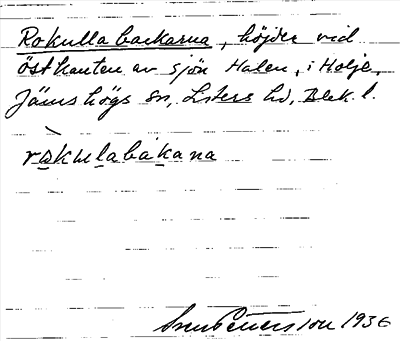 Rokullabackarna, höjder vid
östkanten av sjön Halen, i Holje,
Jämshögs sn, Listers hd, Blek. l.
ròkulabakana
Sven Benson 1936